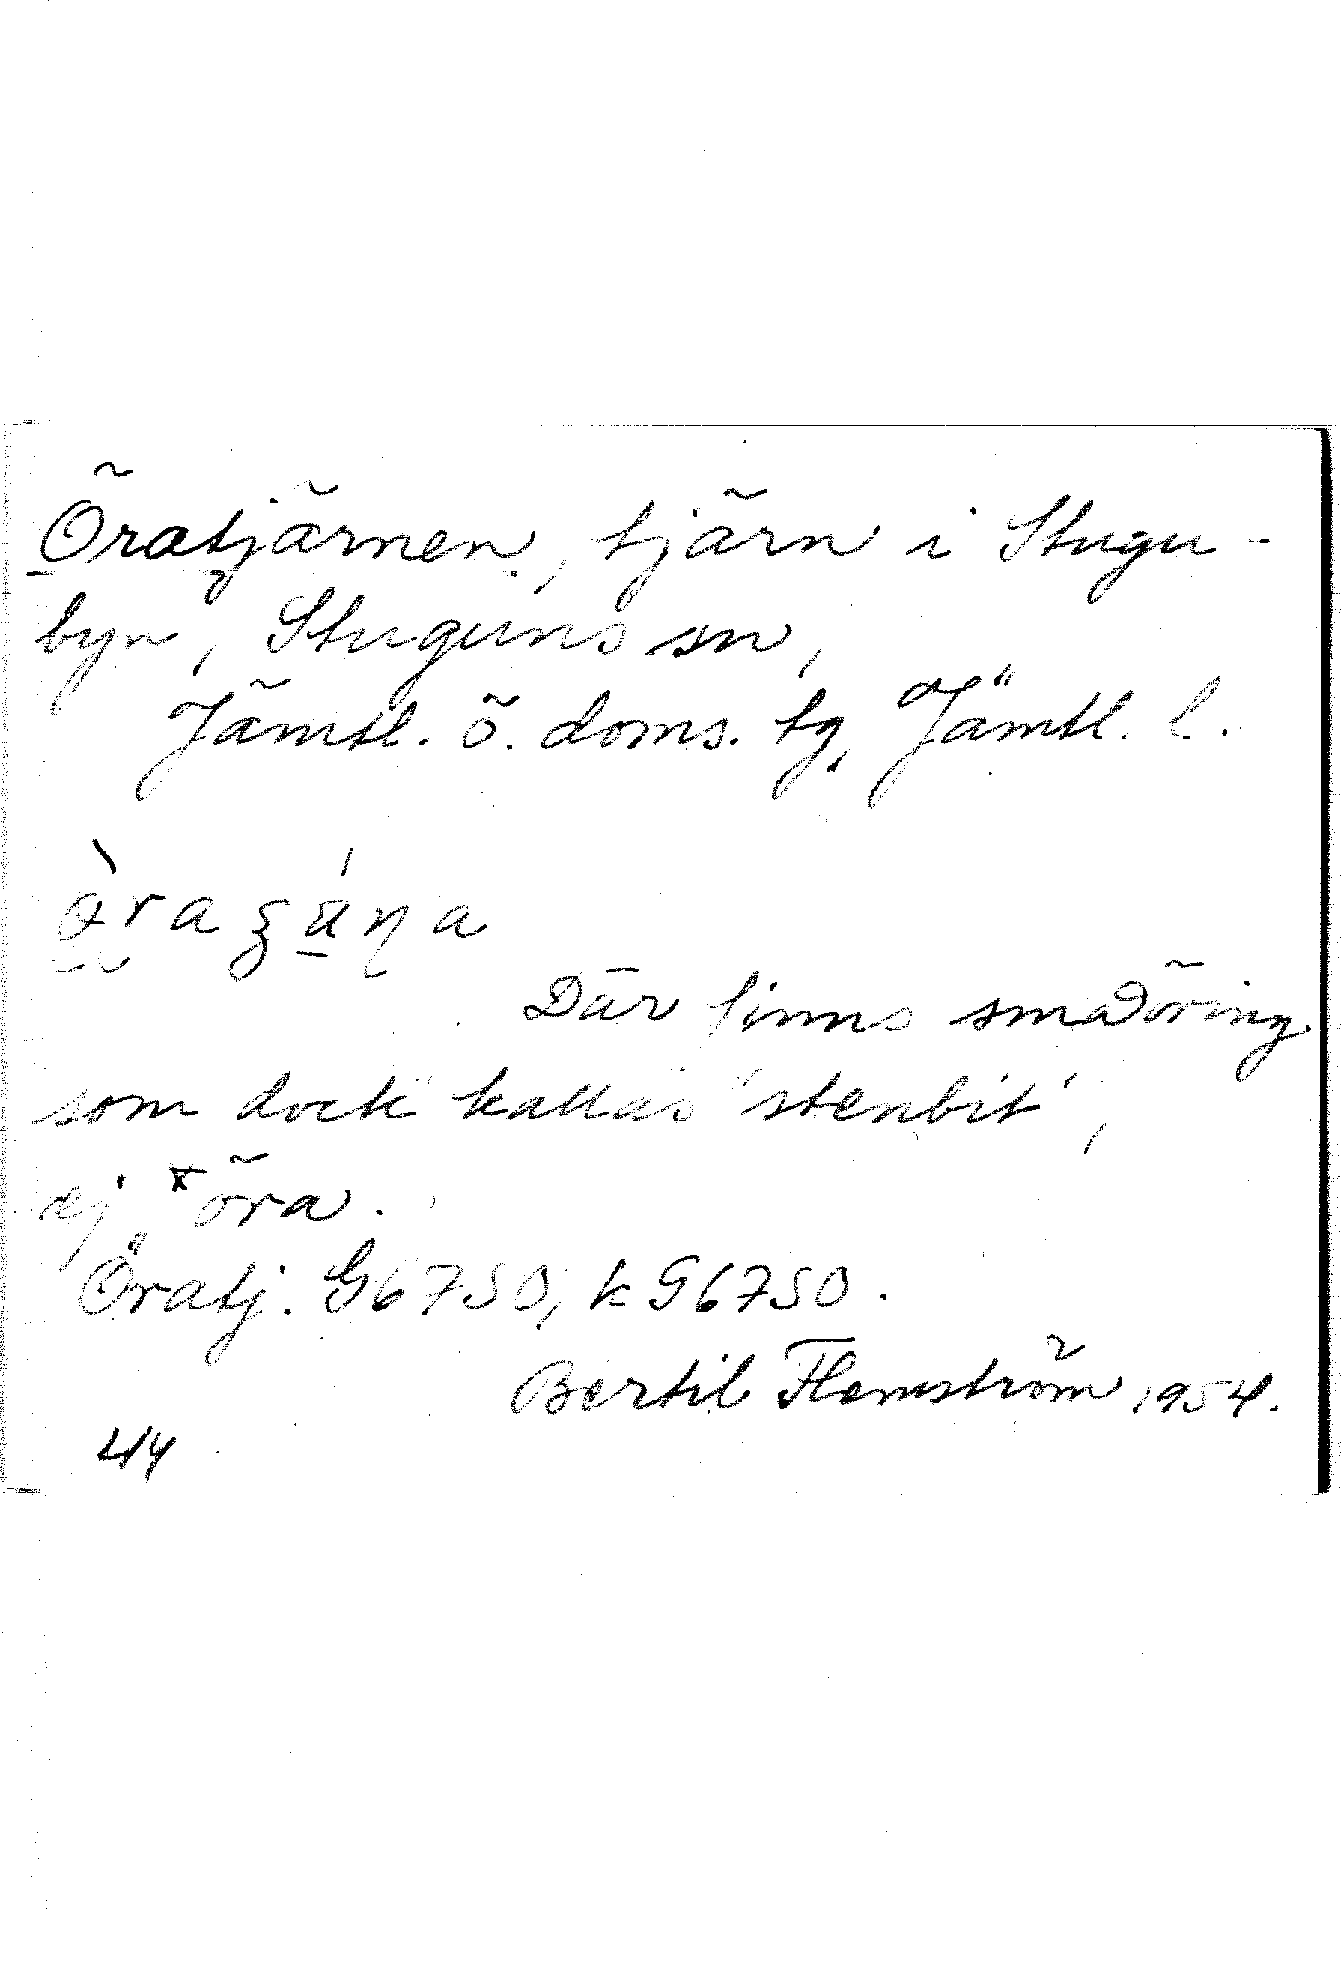 Öratjärnen, tjärn i Stugu-
byn, Stuguns sn,
Jämtl. ö. doms. tg, Jämtl. l.
Där finns småöring
som dock kallas "stenbit",
ej *öra.
Öratj. G6750, k G6750.
Bertil Flemström 1954.